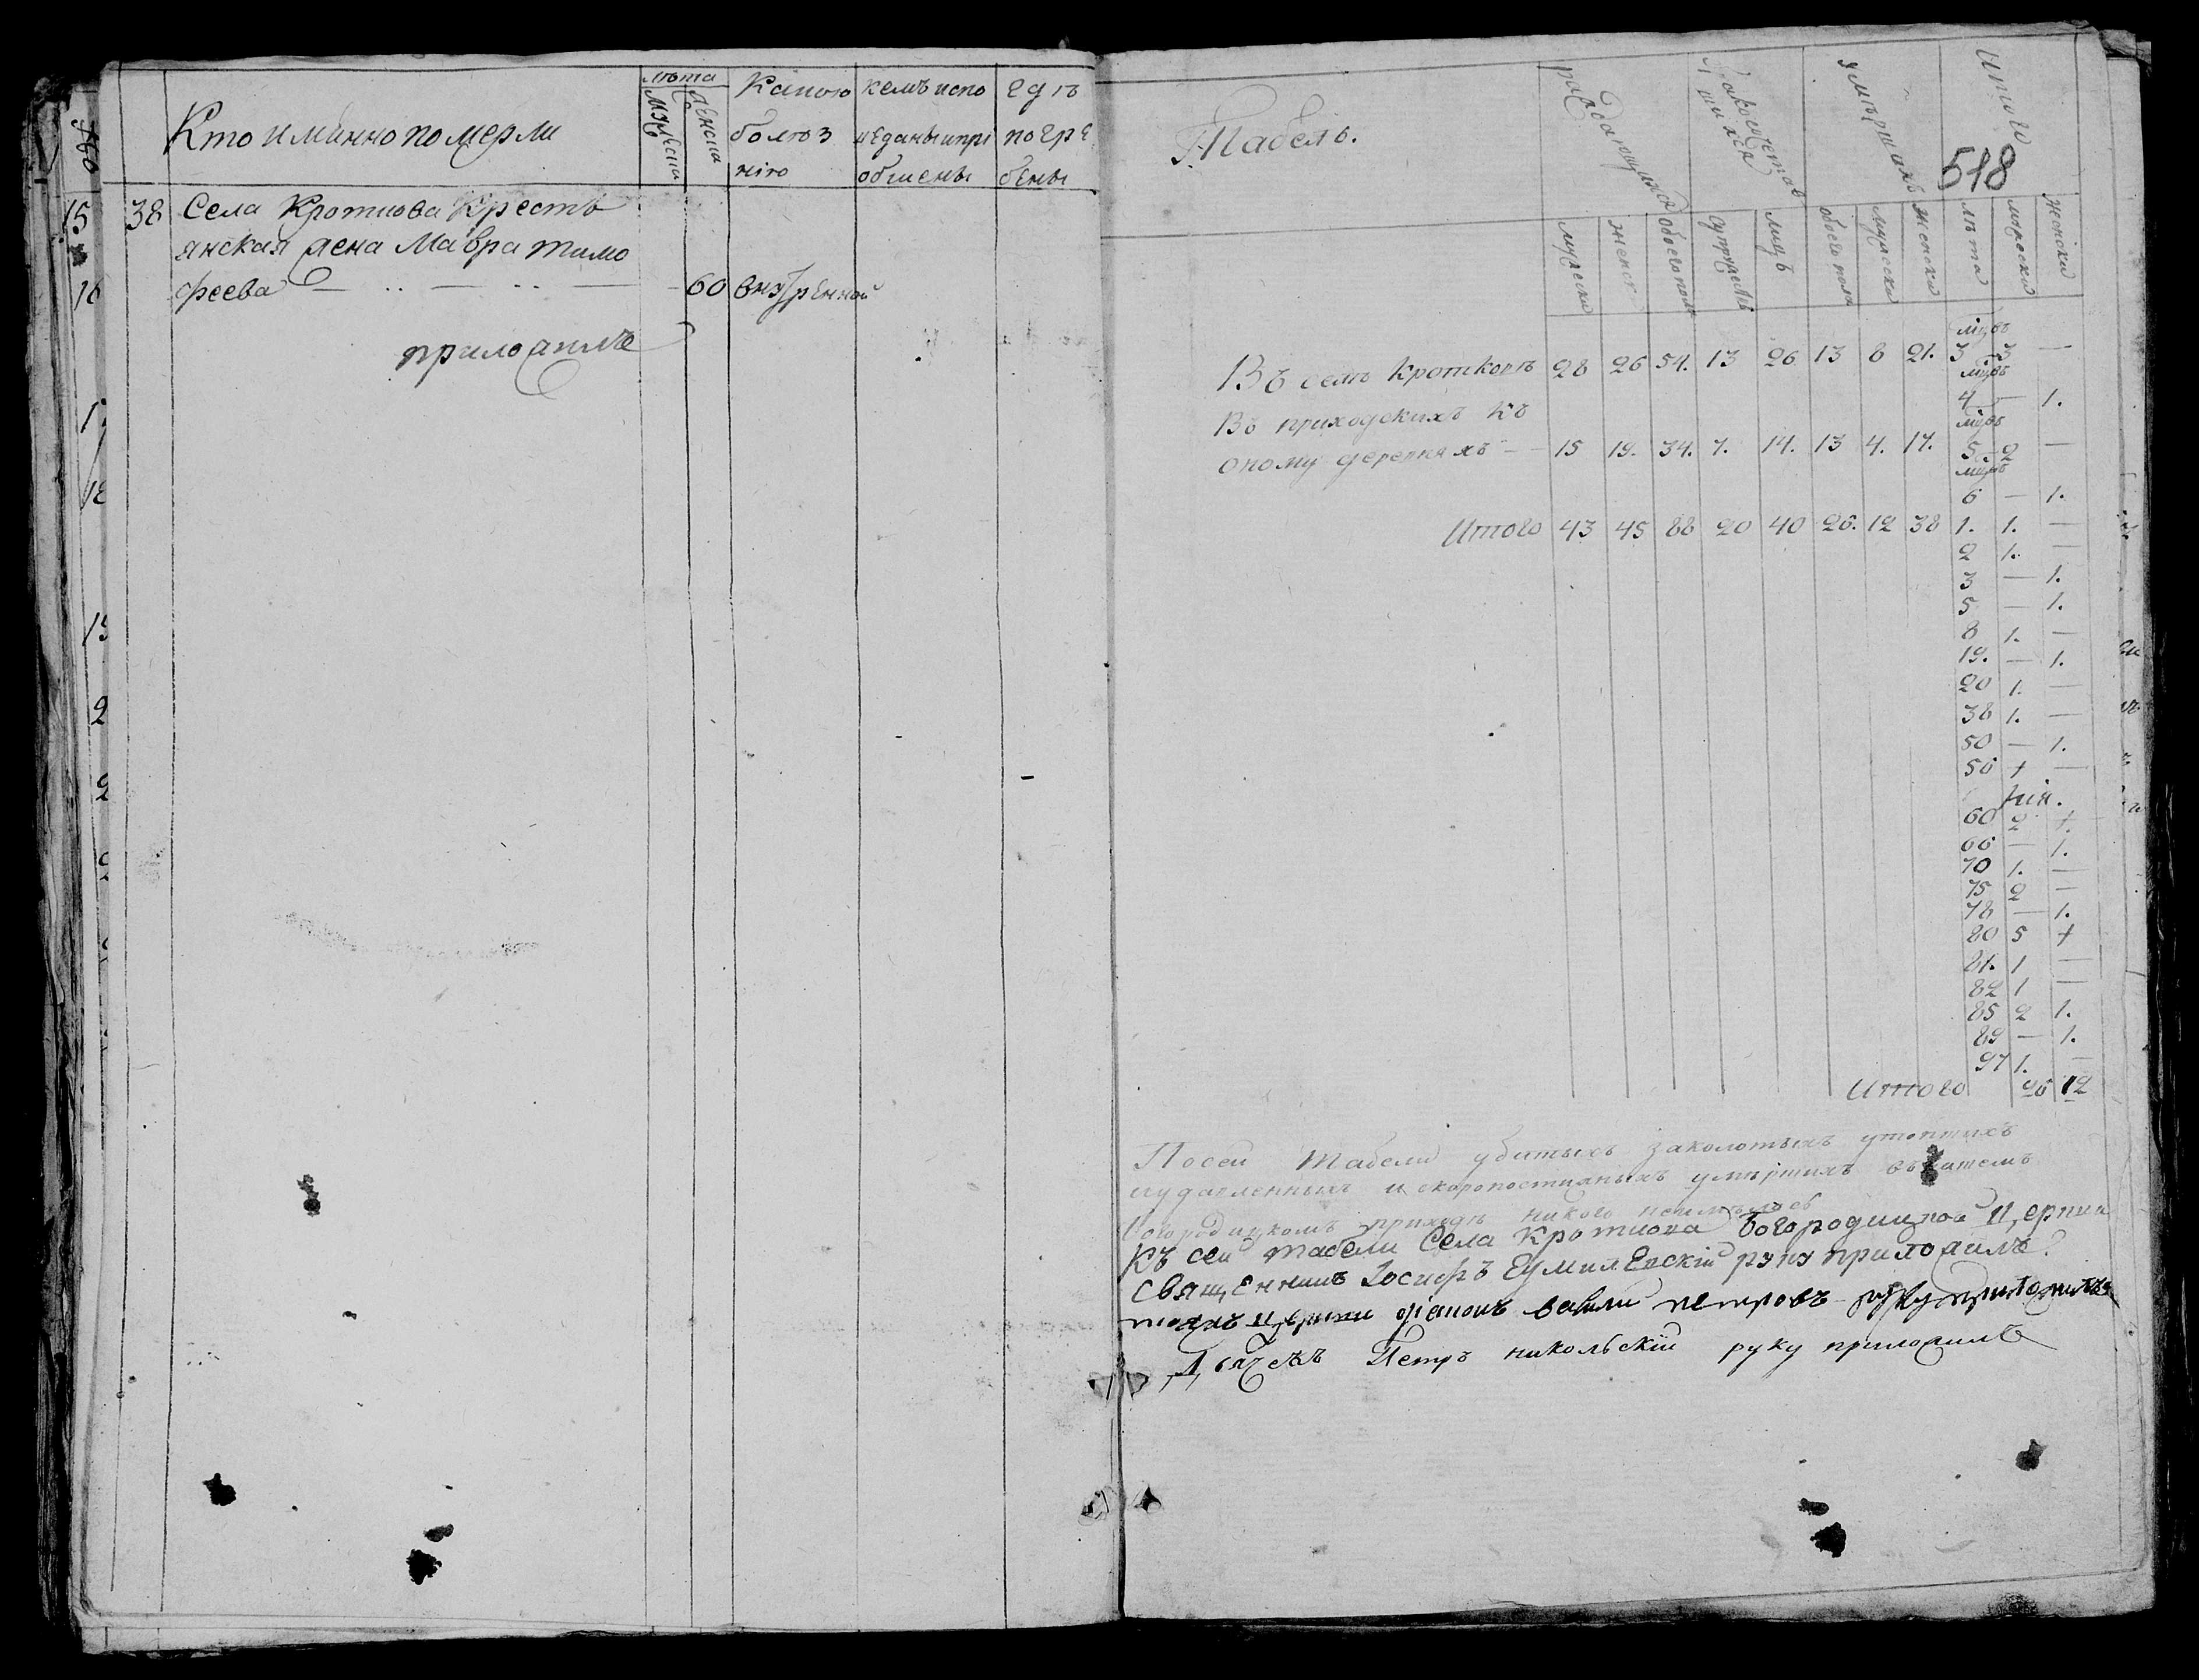 Кто имянно померли
лѣта
мужеска
женска
Какою болѣз нiю
кемъ испо ведыны и прi общены
гдѣ погре бены
38 Села Кроткова Кресть
янская жена Мавра Тимо
феева 60 внутренной
приложилъ
15
16
18
518
Табель.
раждающихся
умершихъ
Итого
мужеска женск обоего пола супружествъ лицъ обоего пола мужеска женска лѣта мужеска женска
Въ селѣ Кротковѣ 28 26 54. 13 26 13 8 21.
Въ приходскихъ къ
оному деревняхъ 15 19. 34. 7. 14. 13 4. 17.
Итого 43 45 88 20 40 26. 12 38
3 3 —
4 — 1.
5 2 —
6 — 1.
1. 1. —
2 1. —
3 — 1.
5 — 1.
8 1. —
19. — 1.
20 1. —
38 1. —
50 — 1.
56 1 —
60 2 1.
66 — 1.
70 1. —
75 2 —
78 — 1.
80 5 1
81. 1 —
82 1 —
85 2 1.
89 — 1.
97 1. —
Итого 26 12
По сей табели убитыхъ заколотыхъ утопшихъ
и удавленныхъ и скоропостижныхъ умершихъ въ
Богородицкомъ приходѣ никого неимѣлось
Къ сей табели Села Кроткова Богородицкой церкви
священникъ Iосифъ руку приложилъ
тояжъ церкви дiаконъ Петровъ руку приложилъ
Дьячекъ Петръ Никольскiй руку приложилъ